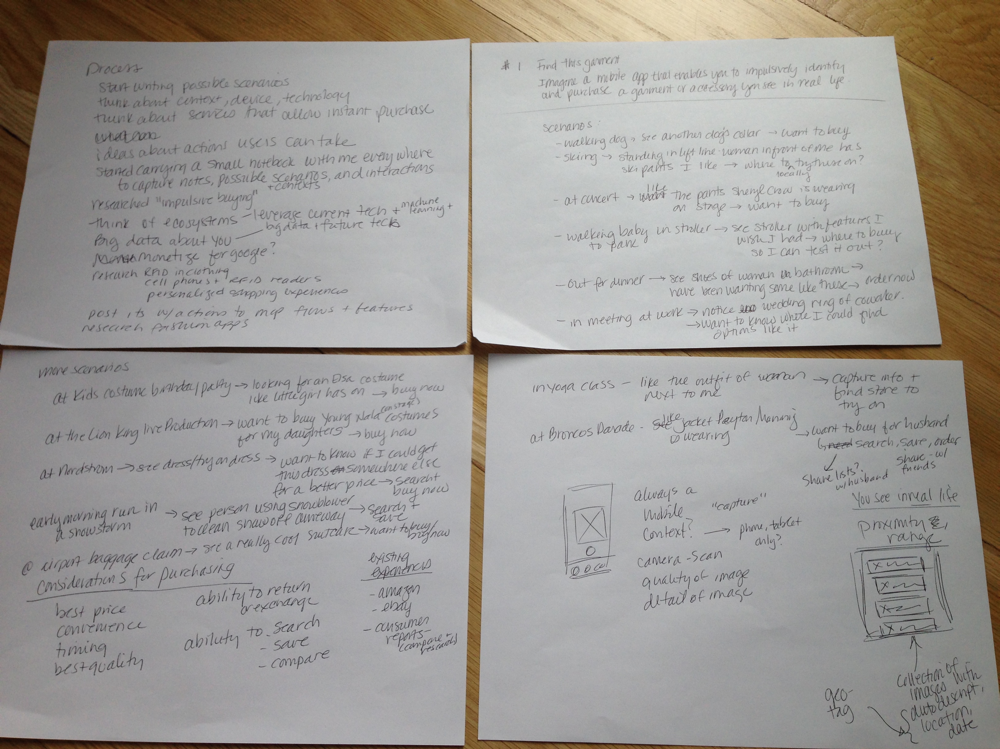 Process
Start writing possible scenarios
think about context, device, technology
think about services that allow instant purchase
ideas about actions users can take
started carrying a small notebook with me everywhere
to capture notes, possible scenarios, and interactions
researched "impulsive buying" + contexts
-think of ecosystems - leverage current tech + machine learning +
big data about you — big data + future tech
monetize for google?
research RFID in clothing
cell phones + RFID readers
personalized shopping experiences
post its w/ actions to map flows + features
research prssum apps
# 1 Find this garment
Imagine a mobile app that enables you to impulsively identify
and purchase a garment or accessory you see in real life.
Scenarios:
- walking dog → see another dog's collar → want to buy
- skiing → standing in lift line woman in front of me has
ski pants I like → where to try these on?
locally
- at concert → like the pants Sheryl Crow is wearing
on stage → want to buy
- walking baby in stroller → see stroller with features I
to park wish I had → where to buy
so I can test it out?
- out for dinner → see shoes of woman in bathroom →
have been wanting some like these → order now
- in meeting at work → notice wedding ring of coworker.
→ want to know where I could find
options like it
more scenarios
at kids costume birthday party → looking for an Elsa costume
like little girl has on → buy now
at the Lion King live Production → want to buy Young Nala costumes
on stage
for my daughters → buy now
at Nordstrom → see dress/try on dress → want to know if I could get
this dress somewhere else
for a better price → search
buy now
early morning run in a snowstorm → see person using snowblower
to clean snow off driveway → search + save
@ airport baggage claim → see a really cool suitcase → want to buy/buy now
considerations for purchasing
best price
convenience
timing
best quality
ability to return
or exchange
ability to - search
- save
- compare
existing experiences
- amazon
- ebay
- consumer
reports -
compare +
research
in yoga class - like the outfit of woman → capture info +
next to me find store to
try on
at Broncos Parade - like jacket Peyton Manning
is wearing
→ want to buy for husband
search, save, order
share w/
friends
share lists?
w/ husband
always a
mobile
context? → phone, tablet
only?
"capture"
camera - scan
quality of image
detail of image
You see in real life
proximity
range
collection of
images with
auto descript,
location,
date
geo-
tag